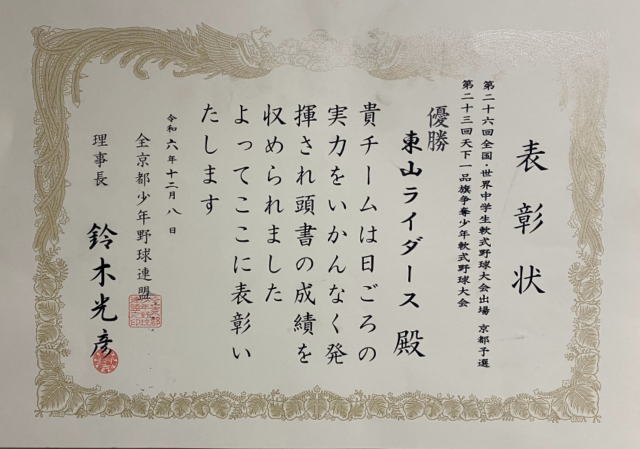 表彰状
第二十六回全国・世界中学生軟式野球大会出場 京都予選
第二十三回天下一品旗争奪少年軟式野球大会
優勝
東山ライダース 殿
貴チームは日ごろの
実力をいかんなく発
揮され頭書の成績を
収められました
よってここに表彰い
たします
令和六年十二月八日
全京都少年野球連盟
理事長 鈴木光彦